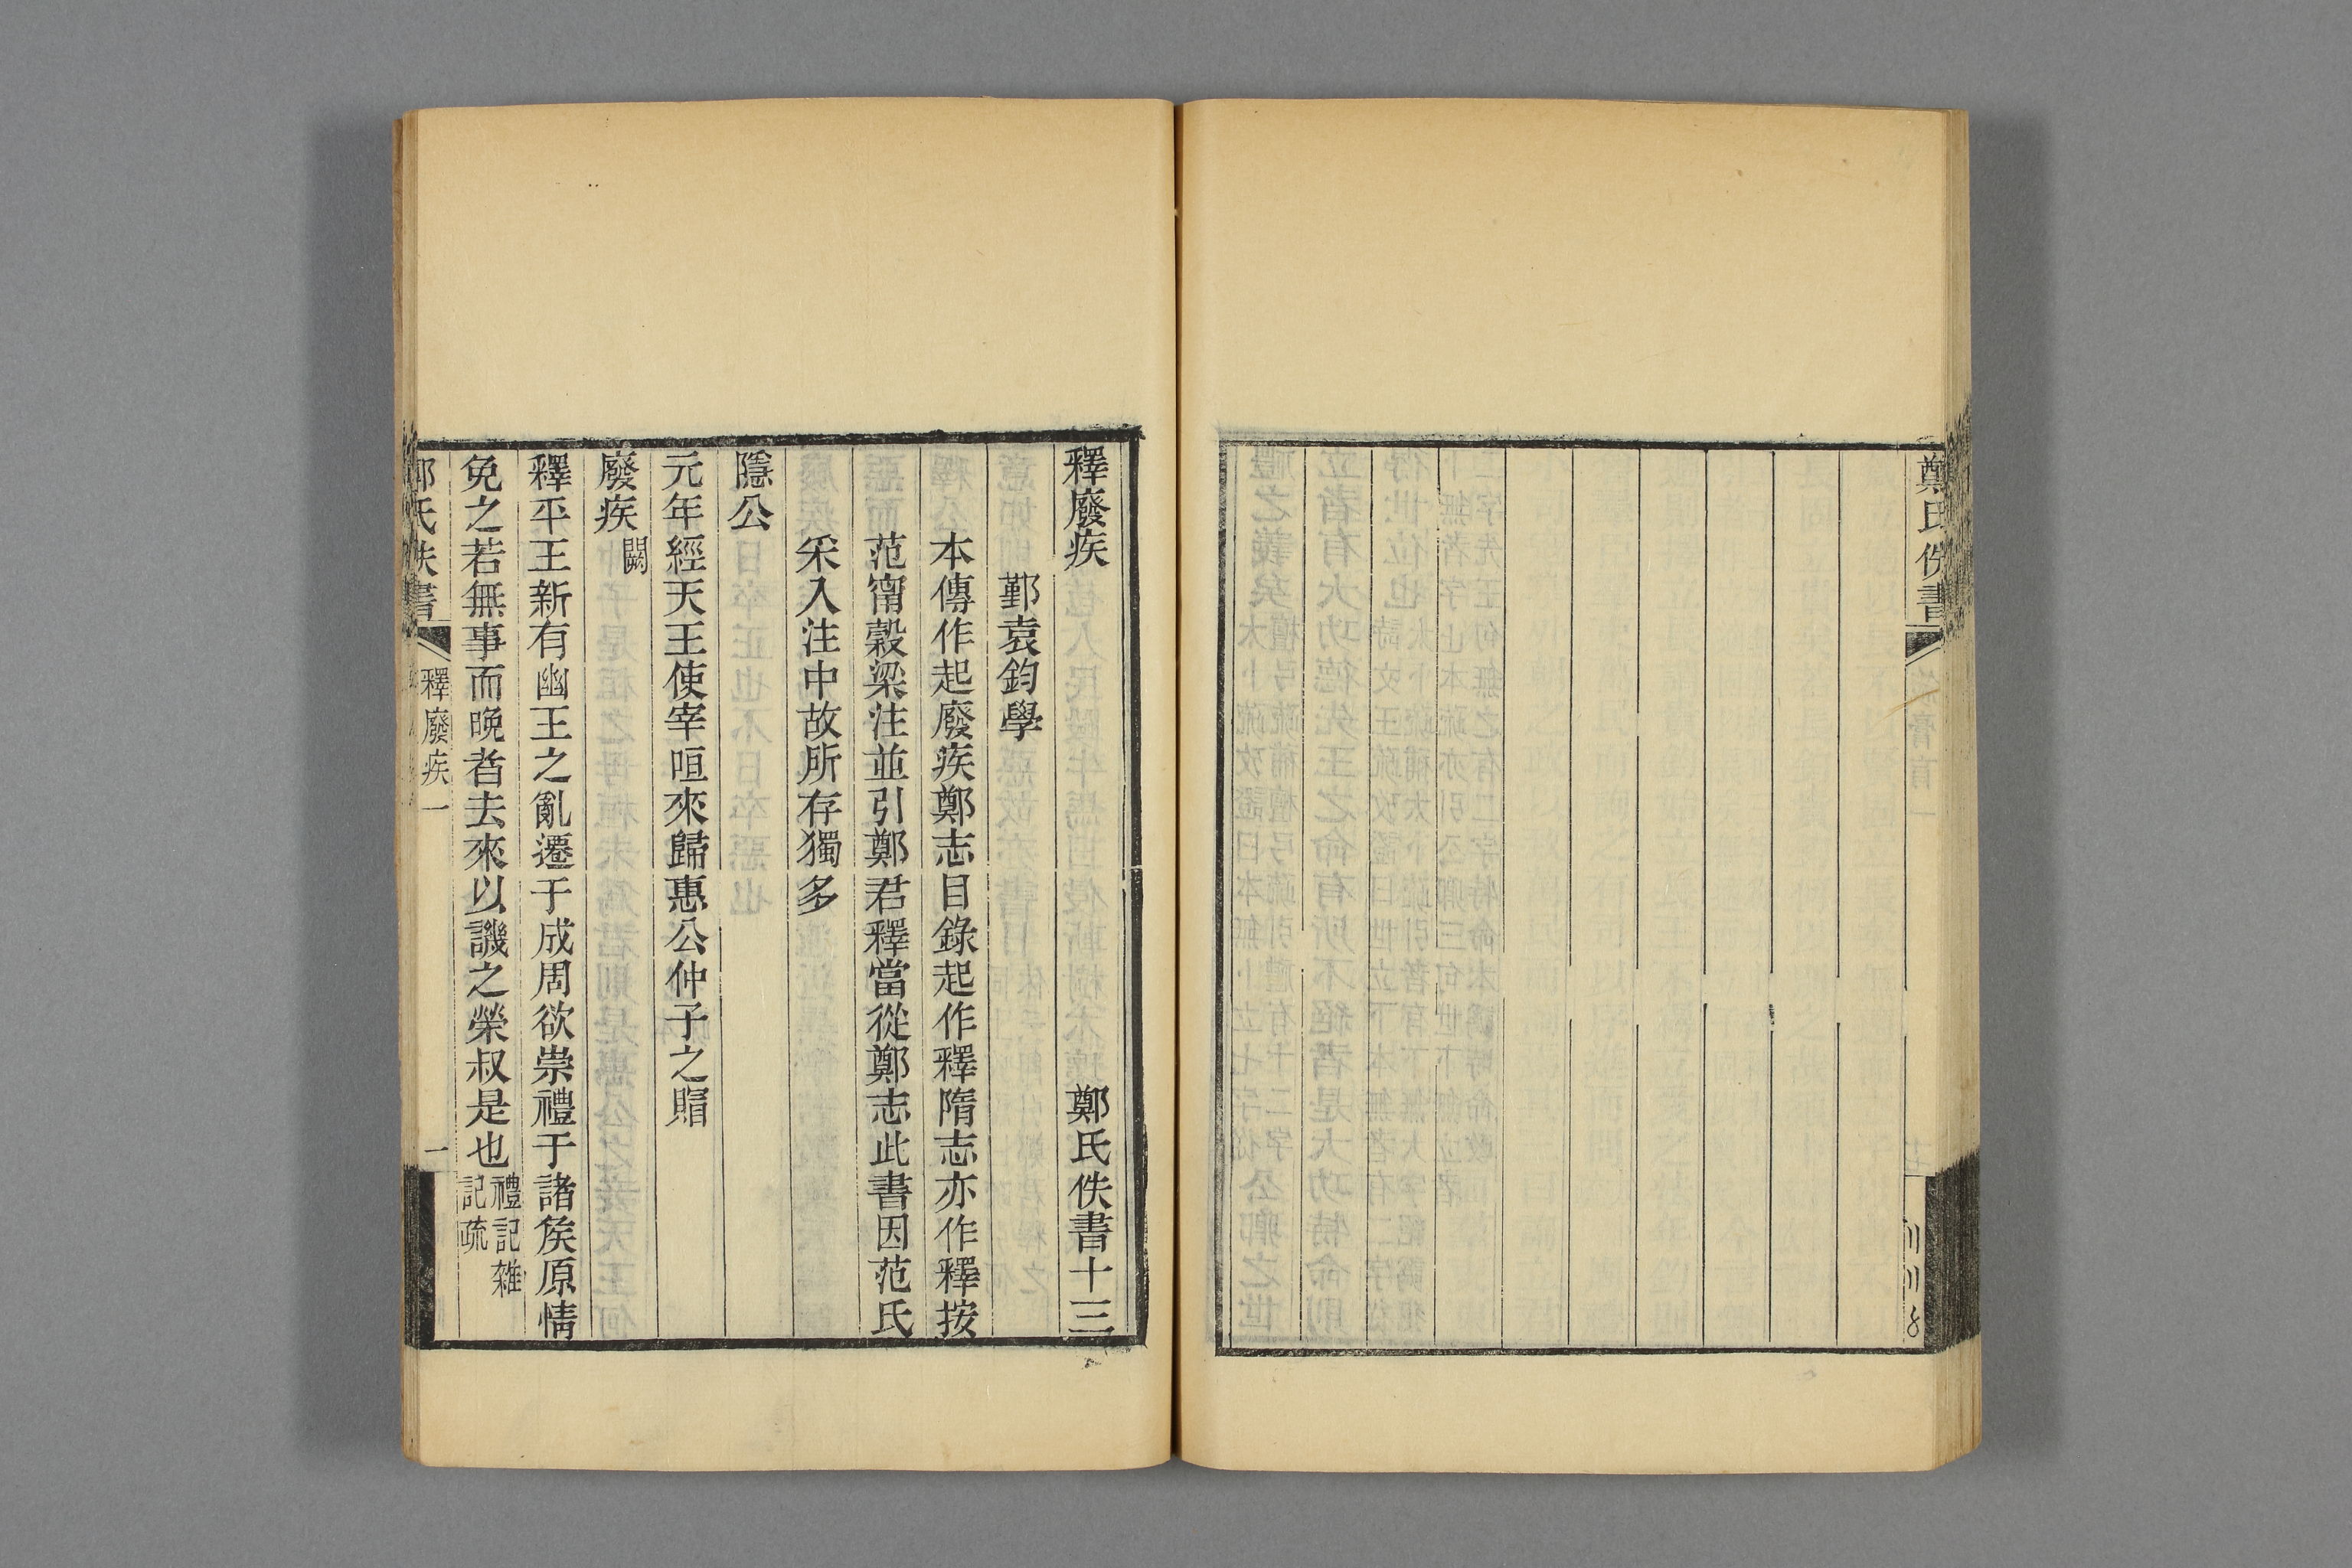 鄭氏佚書
釋廢疾 鄭氏佚書十三
鄞袁鈞學
本傳作起廢疾鄭志目錄起作釋隋志亦作釋按
范甯穀梁注並引鄭君釋當從鄭志此書因范氏
采入注中故所存獨多
隱公
元年經天王使宰咺來歸惠公仲子之賵
廢疾闕
釋平王新有幽王之亂遷于成周欲崇禮于諸矦原情
免之若無事而晚者去來以譏之榮叔是也禮記雜
記疏
鄭氏佚書 釋廢疾一 一